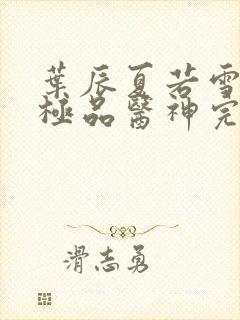 葉辰夏若雪
極品醫神完
滑志勇